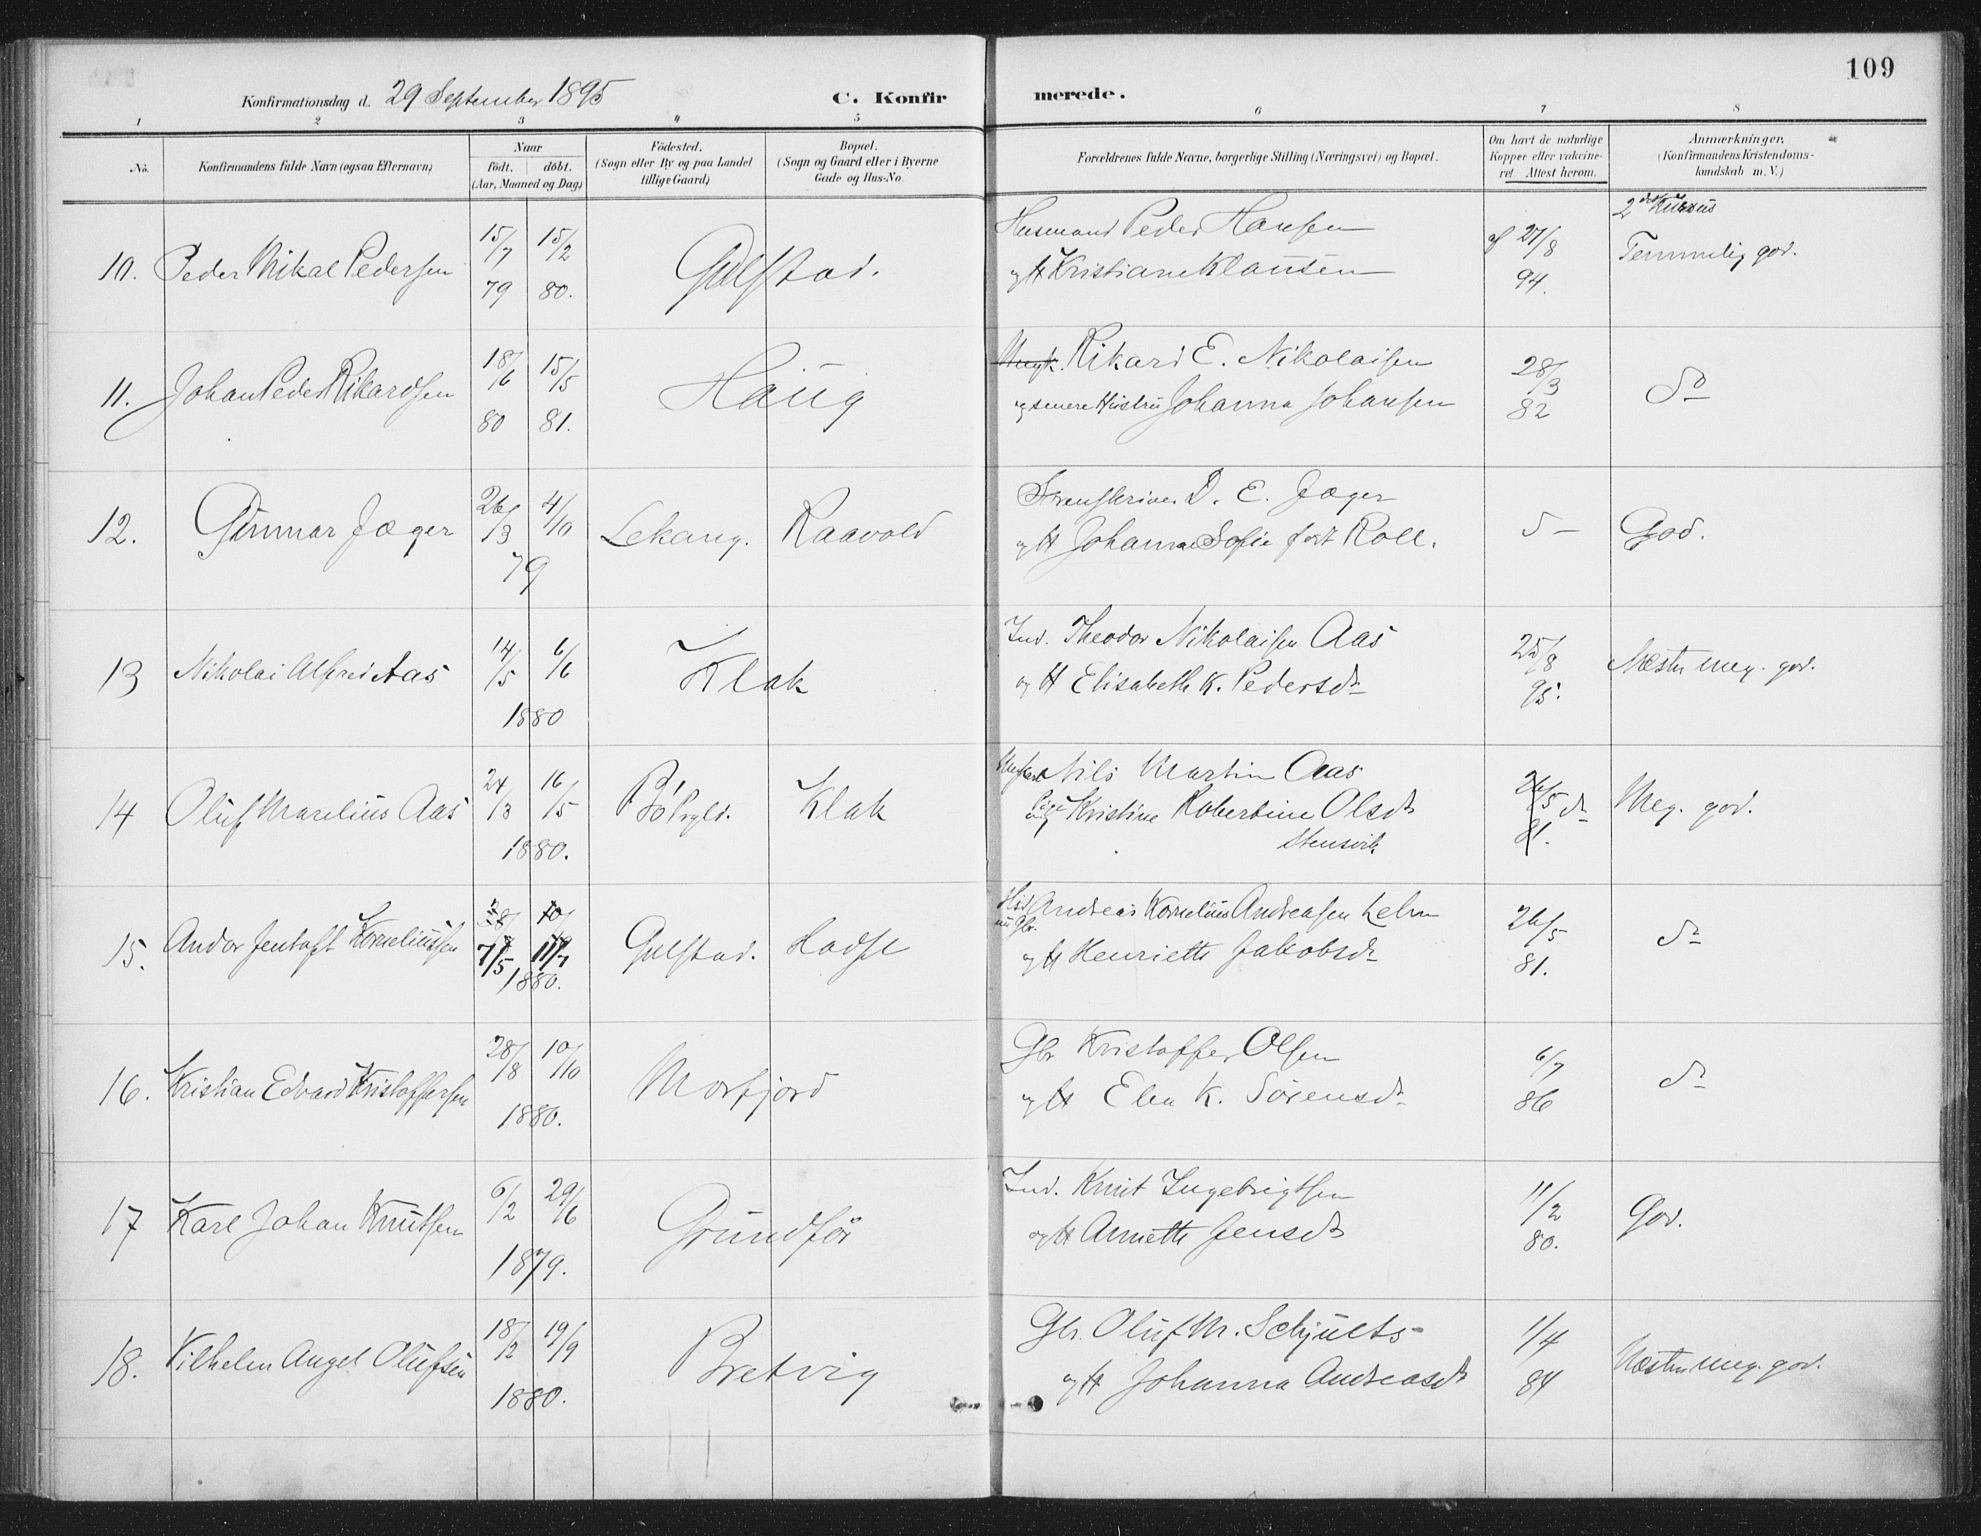 109
Konfirmationsdag d. 29 September 1895 C. Konfirmerede.
1 2 3 4 5 6 7 8
No. Konfirmandens fulde Navn (ogsaa Efternavn)
Naar
födt. döbt.
(Aar, Maaned og Dag)
Födested.
(Sogn eller By og paa Landet
tillige Gaard)
Bopæl.
(Sogn og Gaard eller i Byerne
Gade og Hus-No.
Forældrenes fulde Navne, borgerlige Stilling (Næringsvei) og Bopæl.
Om havt de naturlige
Kopper eller vakcine-
ret. Attest herom.
Anmærkninger.
(Konfirmandens Kristendoms-
kundskab m. V.)
10. Peder Mikal Pedersen 15/7 79 15/2 80. Gulstad.
Husmand Peder Hansen
og H Kristiane Klausen
af 27/8 94.
2det Kursus
Temmelig god.
11. Johan Peder Rikardsen 18/6 80 15/5 81. Haug
Ungk. Rikard E. Nikolaisen
og senere Hustru Johanna Johansen
28/3 82
do
12. Gunnar Jæger 26/3 4/10 79 Lekang. Raavold
Sorenskriver D. E. Jæger
og H Johanna Sofie født Roll.
d – God.
13 Nikolai Alfred Aas 14/5 6/6 1880 Klak
Ind. Theodor Nikolaisen Aas
og H Elisabeth K. Pedersdr
25/8 95.
Næsten meg. god.
14 Oluf Marelius Aas 24/3 16/5 1880. Bö Prgld. Klak
Ungkarl Nils Martin Aas
og Pige Kristine Robertine Olsdr
Stensvik
26/5 81. dr
Meg. god.
15. Andor Jentoft Korneliussen 7/5 11/7 1880. Gulstad. Hadsel
Andreas Kornelius Andreasen
og H Henriette Jakobsdr
26/5 81.
dr
16. Kristian Edvard Kristoffersen 28/8 10/10 1880. Morfjord
Gbr Kristoffer Olsen
og H Elen K. Sörensdr
6/7 86
dr
17 Karl Johan Knutsen 6/2 29/6 1879. Grundför
Ind. Knut Ingebrigtsen
og H Annette Jensdr
11/2 80.
God.
18. Vilhelm Angel Olufsen 18/2 19/9 1880. Bretvig
Gbr. Oluf M. Schjults-
og H Johanna Andreasdr
1/4 84
Næsten meg. god.